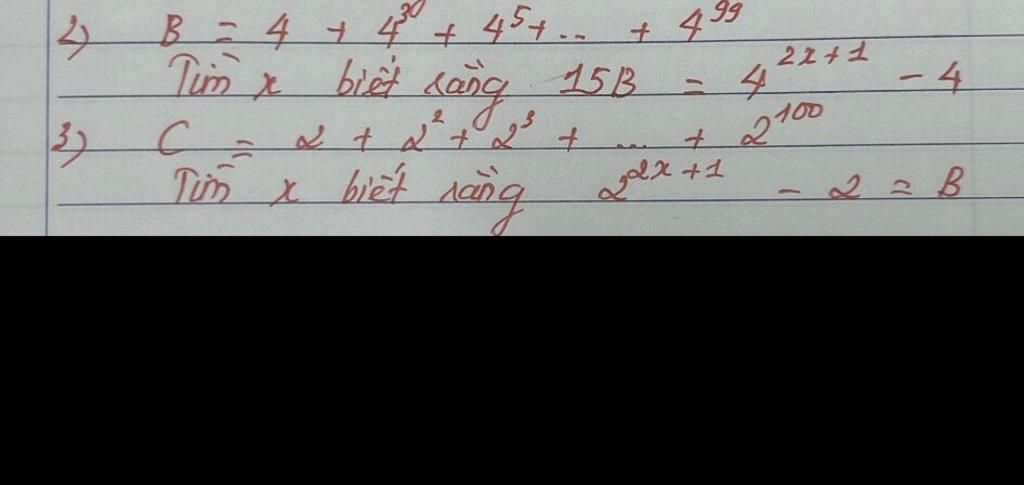 2) B = 4 + 4³⁰ + 4⁵ + ... + 4⁹⁹
Tìm x biết rằng 15B = 4²ˣ⁺¹ - 4
3) C = 2 + 2² + 2³ + ... + 2¹⁰⁰
Tìm x biết rằng 2²ˣ⁺¹ - 2 = B